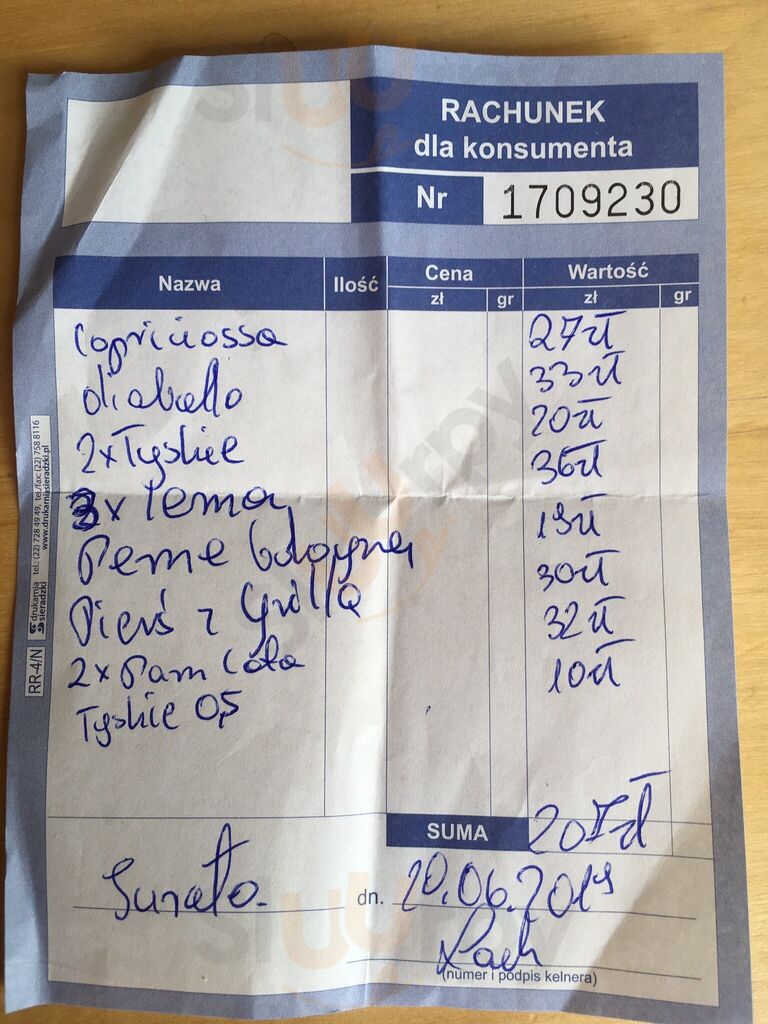 RACHUNEK
dla konsumenta
Nr 1709230
Nazwa Ilość Cena Wartość
zł gr zł gr
Capriciossa 27zł
diabello 33zł
2xTyskie 20zł
3x lemon 36zł
Penne bolognej 19zł
Pierś z Grilla 30zł
2x Pam Cola 32zł
Tyskie 0,5 10zł
SUMA 207zł
dn. 20.06.2019
(numer i podpis kelnera)
RR-4/N
drukarnia sieradzki
tel.: (22) 728 49 49, tel./fax: (22) 758 8116
www.drukarniasieradzki.pl